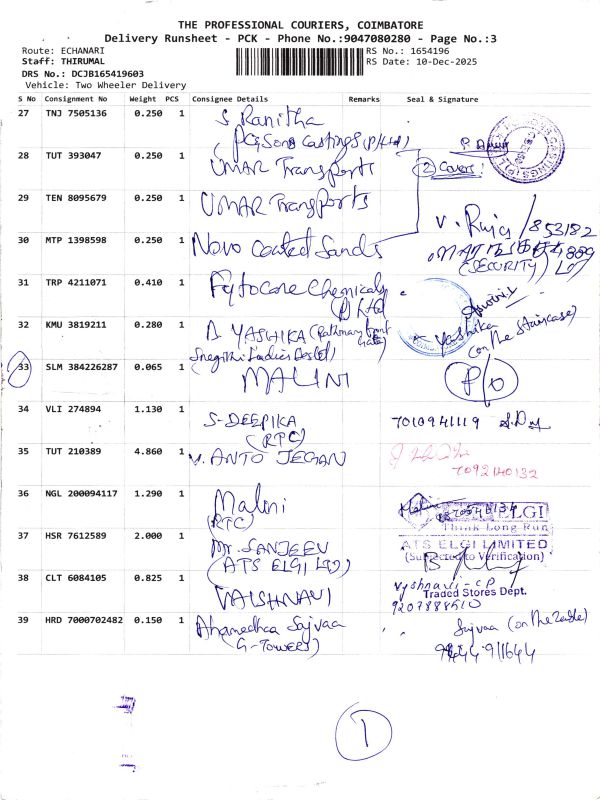 THE PROFESSIONAL COURIERS, COIMBATORE
Delivery Runsheet - PCK - Phone No.:9047080280 - Page No.:3
Route: ECHANARI
RS No.: 1654196
Staff: THIRUMAL
RS Date: 10-Dec-2025
DRS No.: DCJB165419603
Vehicle: Two Wheeler Delivery
S No Consignment No Weight PCS Consignee Details Remarks Seal & Signature
27 TNJ 7505136 0.250 1 S Ranitha
(PCGSons Castings (P) Ltd)
28 TUT 393047 0.250 1 UMAR Transports (2) Covers!
29 TEN 8095679 0.250 1 UMAR Transports
V. Raja / 853182
30 MTP 1398598 0.250 1 Novo Coated Sands
(SECURITY)
31 TRP 4211071 0.410 1 Fytocare Chemicals
(P) Ltd
32 KMU 3819211 0.280 1 D. YASHIKA (Pathway front Gate)
Yashika
(on the Staircase)
Snegithi Ladies Hostel)
33 SLM 384226287 0.065 1 MALINI P/O
34 VLI 274894 1.130 1 S-DEEPIKA 7010941119
(RPC)
35 TUT 210389 4.860 1 V. ANTO JEGAN
7092140132
36 NGL 200094117 1.290 1 Malini
(RTC)
ELGI
Think Long Run
37 HSR 7612589 2.000 1 Mr. SANJEEV
ATS ELGI LIMITED
(ATS ELGI LTD)
(Subjected to Verification)
38 CLT 6084105 0.825 1 VAISHNAVI
Vyshnavi-CP
Traded Stores Dept.
9207888610
39 HRD 7000702482 0.150 1 Ahamedhaa Sajvaa
Sajvaa (on the table)
(G-Towers)
1